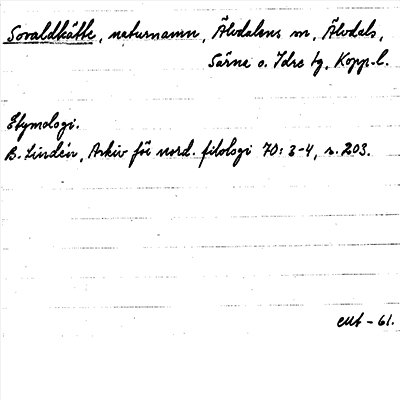 Sovaldkätte, naturnamn, Älvdalens sn, Älvdals,
Särna o. Idre tg, Kopp. l.
Etymologi.
B. Lindén, Arkiv för nord. filologi 70: 3-4, s. 203.
- 61.